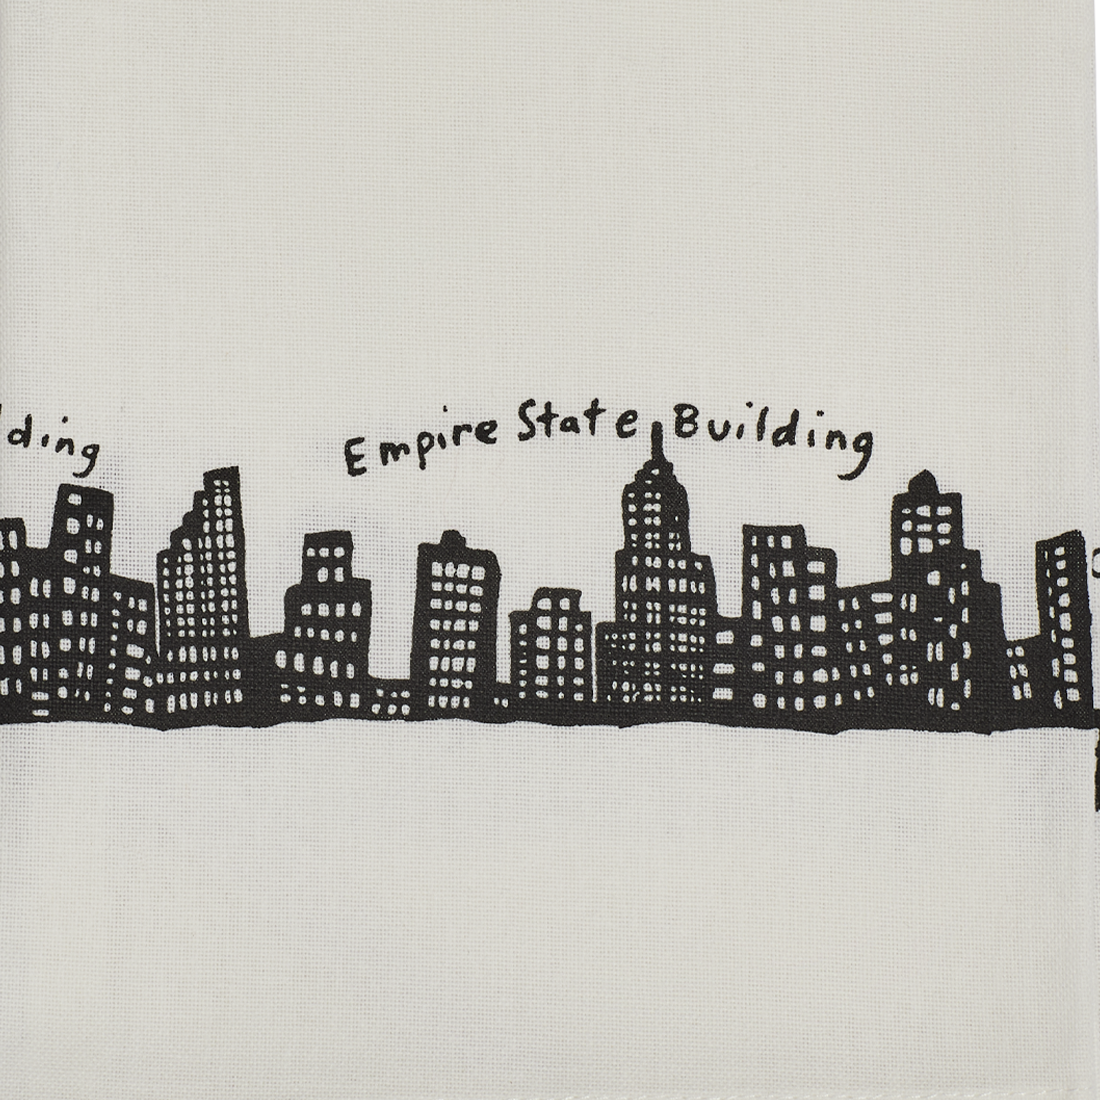 lding
Empire State Building